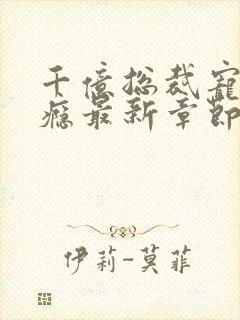 千億总裁寵
瘾最新章節
伊莉-莫菲